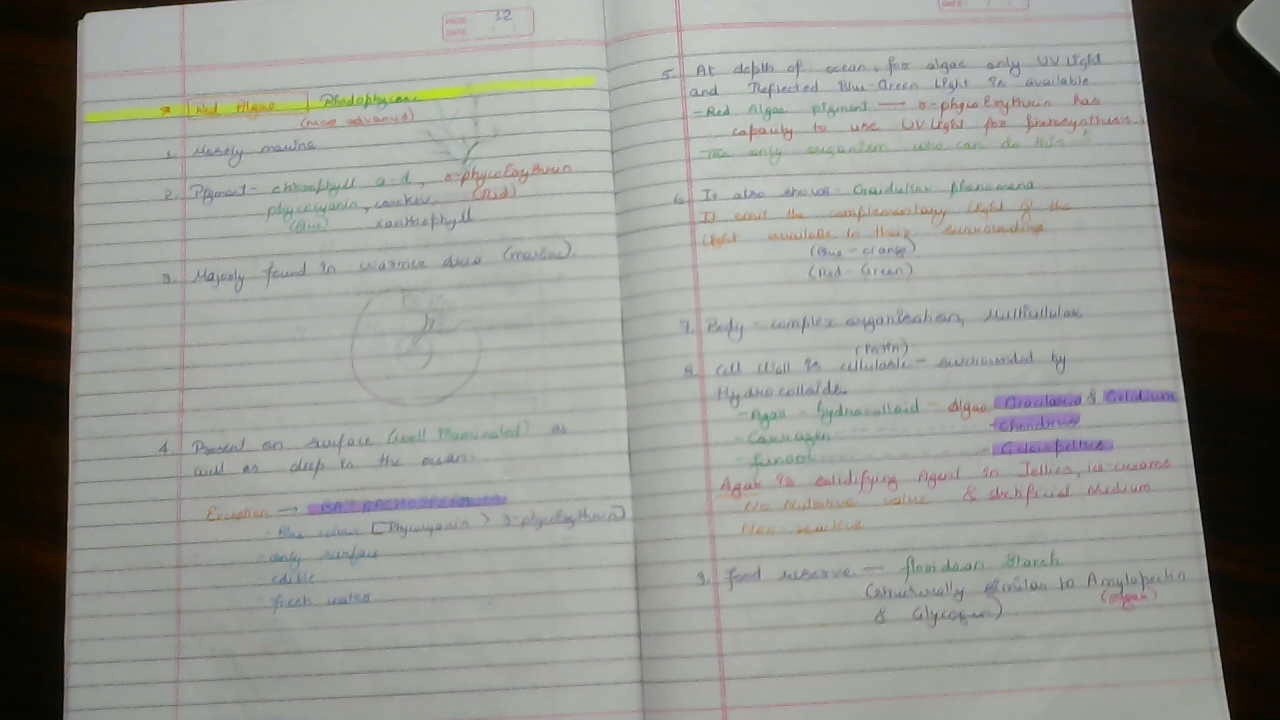 PAGE 12
DATE
* Red Algae | Rhodophyceae
(more advanced)
1. Mostly marine
2. Pigment - chlorophyll a-d, r-phycoerythrin
phycocyanin, (Red)
(Blue) xanthophyll
3. Majorly found in warmer area (marine).
4. Present on surface (well illuminated) as
well as deep in the ocean.
Exception →
Blue colour [Phycocyanin > r-phycoerythrin]
only surface
edible
fresh water
DATE
5. At depth of ocean, for algae only UV light
and Reflected Blue-Green Light is available
- Red Algae pigment — r-phycoerythrin has
capacity to use UV Light for photosynthesis.
- The only organism who can do this
6. It also shows - Gaidukov phenomena
It emit the complementary light of the
light available in their surroundings
(Blue - orange)
(Red - Green)
7. Body - complex organisation, Multicellular
8. Cell Wall is cellulosic - surrounded by
Hydrocolloids.
- Agar - hydrocolloid - algae Gracilaria & Gelidium
- Chondrus
- Funori
Agar is solidifying Agent in Jellies, ice-creams
No Nutritive value & artificial Medium
Non reactive
9. food reserve — floridean Starch
(structurally similar to Amylopectin
& Glycogen)